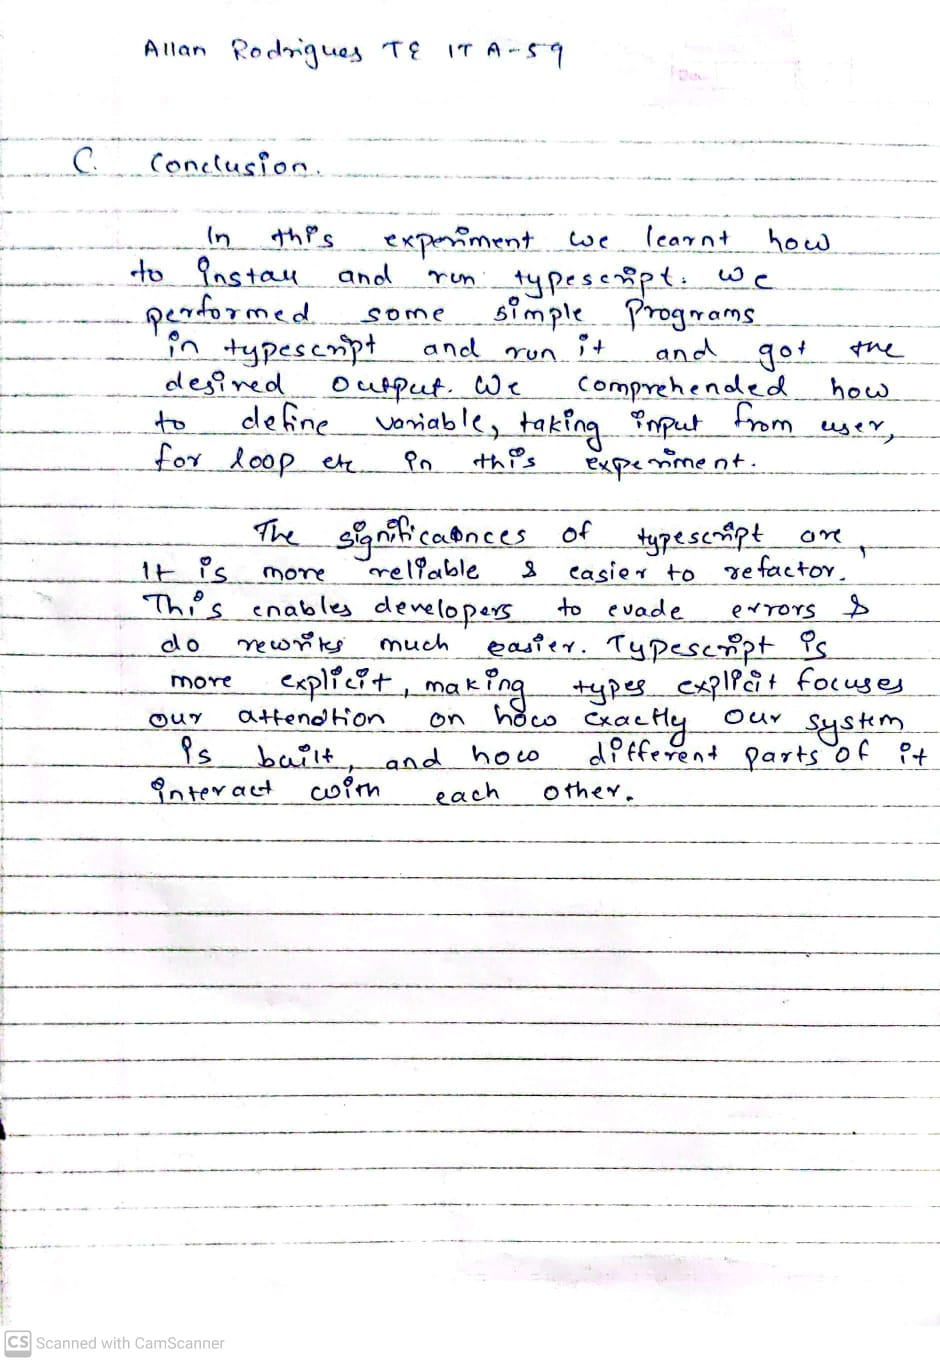 Allan Rodrigues TE IT A-59
C. Conclusion.
In this experiment we learnt how
to install and run typescript. we
performed some simple Programs
in typescript and run it and got the
desired output. We comprehended how
to define variable, taking input from user,
for loop etc in this experiment.
The significances of typescript are,
It is more reliable & easier to refactor.
This enables developers to evade errors &
do rewrites much easier. Typescript is
more explicit, making types explicit focuses
our attention on how exactly our system
is built, and how different parts of it
interact with each other.
CS Scanned with CamScanner